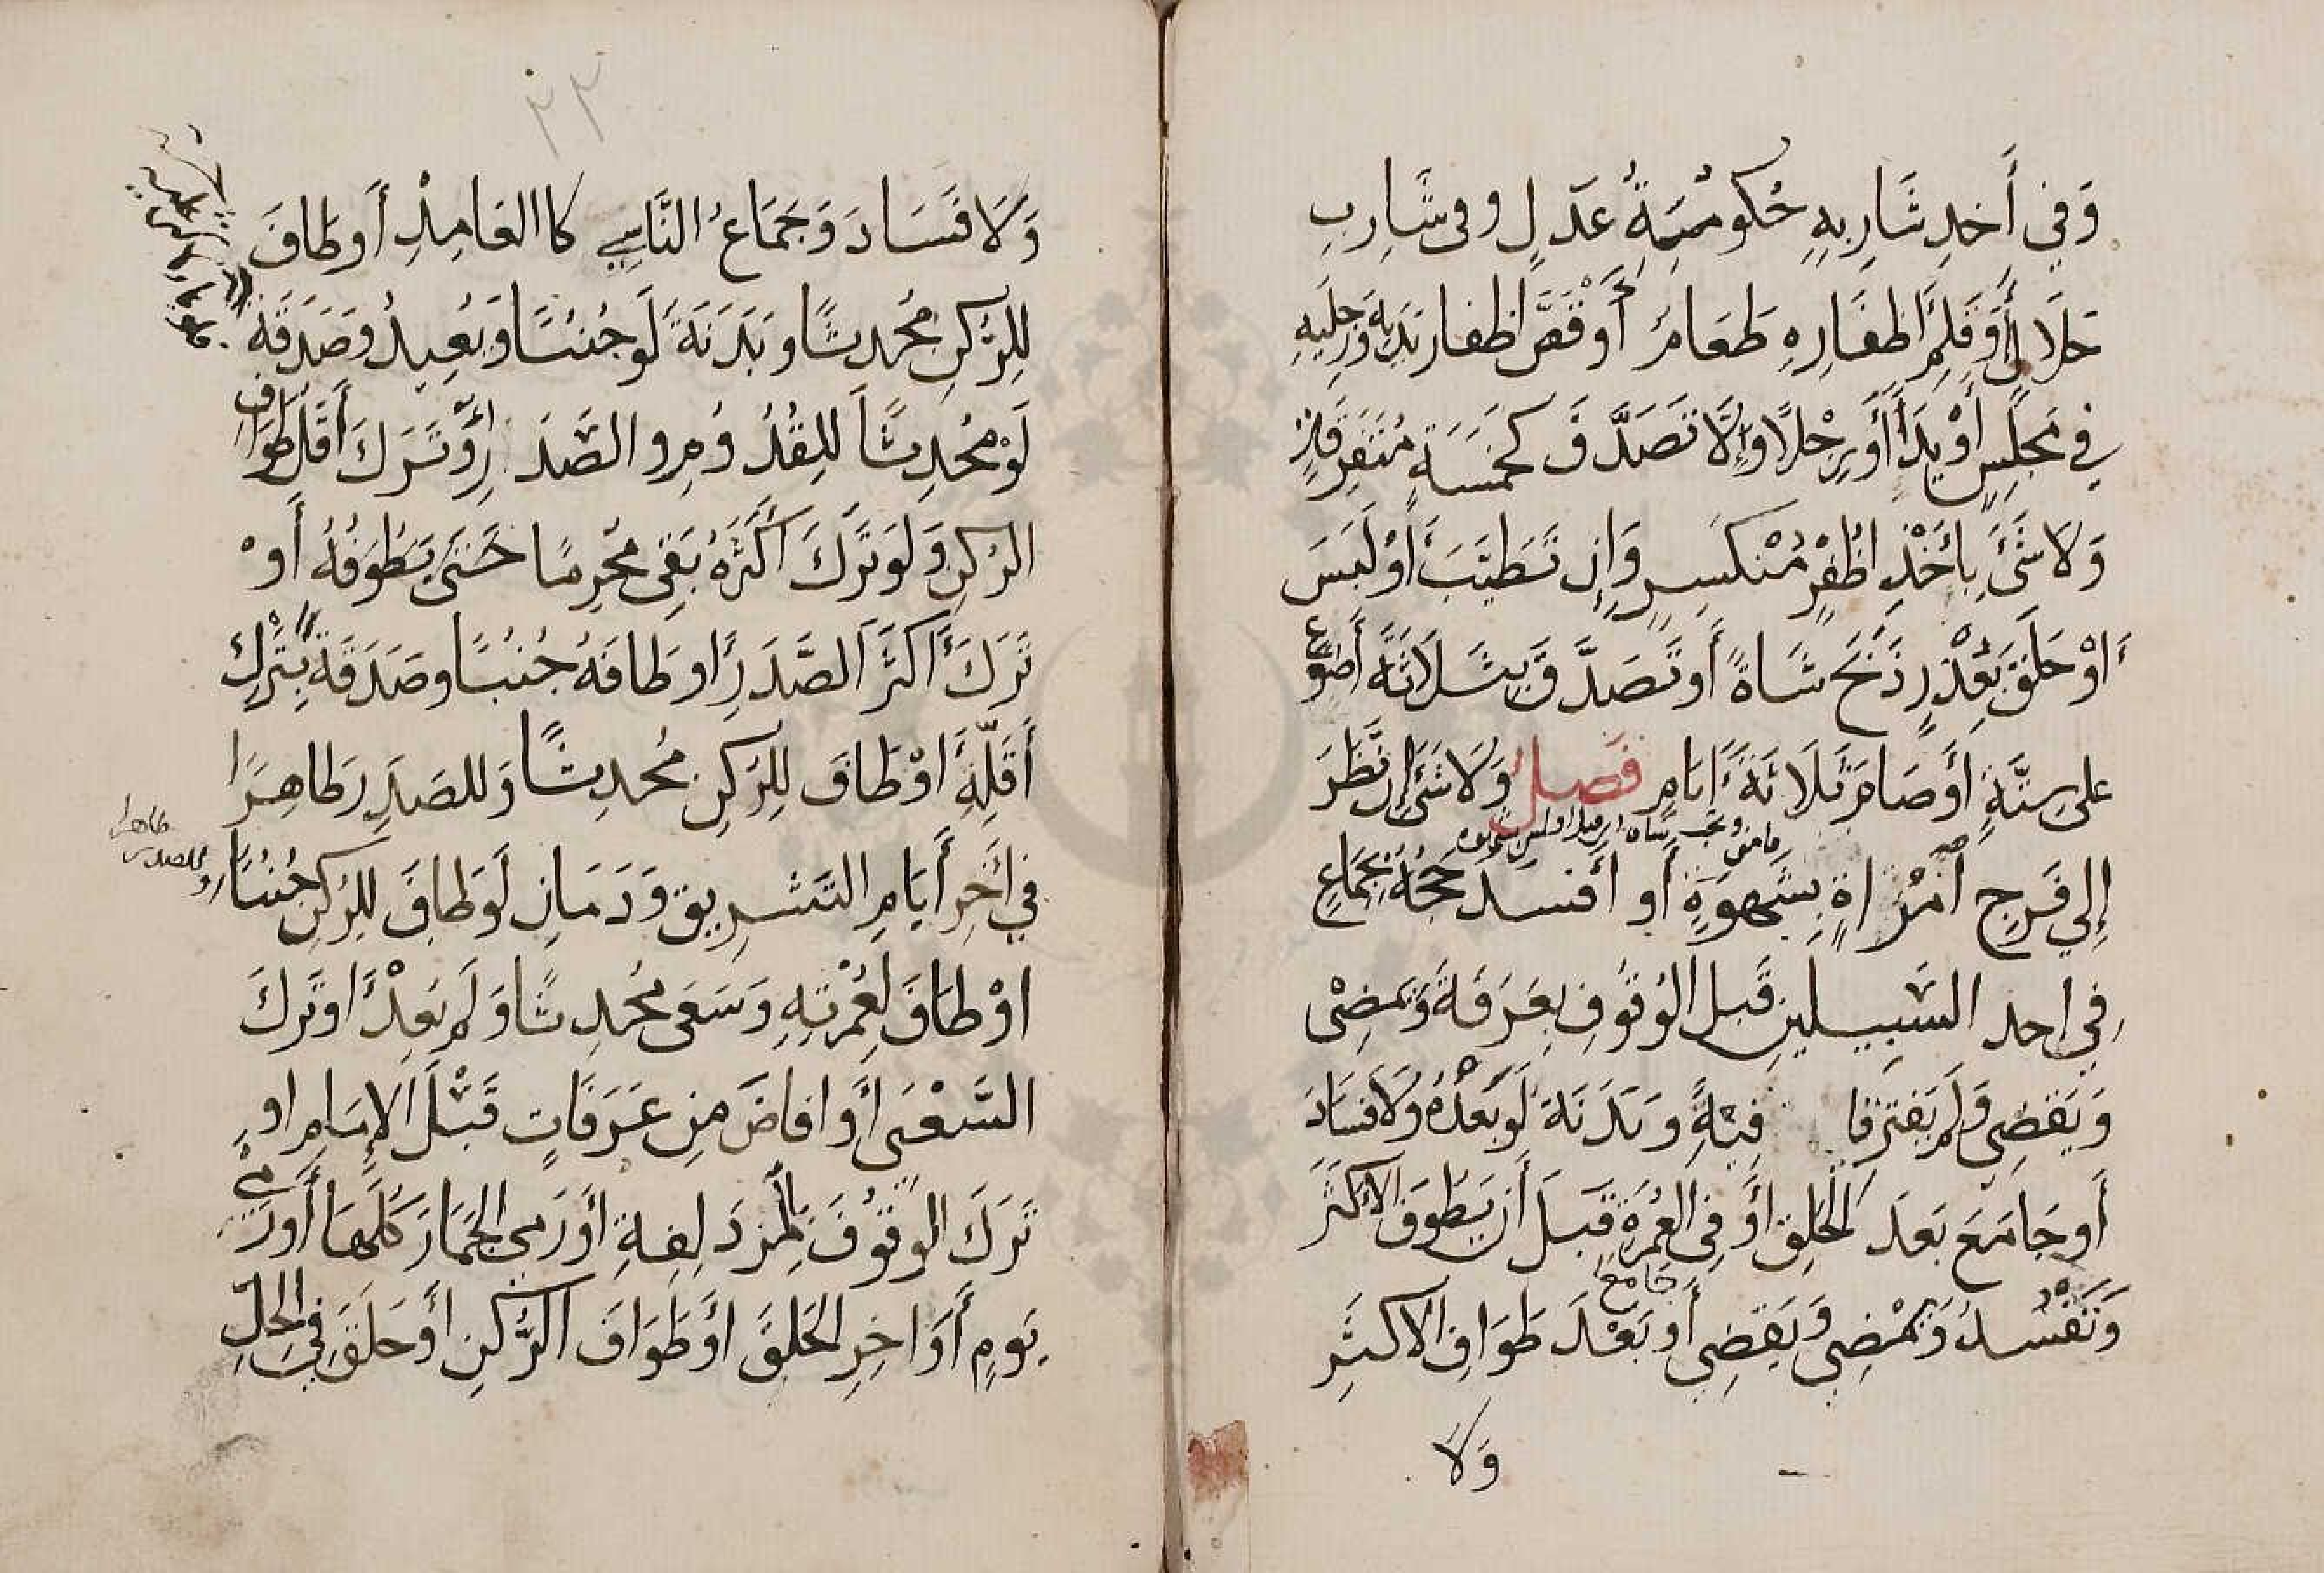 وَفِي أَخذِ شَارِبِهِ حُكومَةُ عَدلٍ وفى شَارِبِ
حَلَالٍ أَوقَلِمِ أظفَارِهِ طَعَامٌ أَوْقَصَّ اظفار يَدَيهِ وَرِجلَيهِ
فِي مَجلِسٍ أَوْ يَدًا أَورِجْلًا وَإِلَّا تَصَدَّقَ كخَمسَةٍ مُتَفَرِقَةٍ
وَلَا شَئَ بِأخْذِ اظُفْرٍ مُنْكسِرٍ وَإِن تَطَيَّبَ أَوْلَبَسَ
أَوْ حَلَقَ بعُذْرٍ ذَبَحَ شَاةً أَو تَصَدَّقَ بِثَلَاثَةِ أَصْوُعٍ
على سِتَّةٍ أَوصَامَ ثَلَاثَةَ أيَامٍ فَصل وَلَا شَئَ إن نَّظَرَ
إِلي فَرجِ امْرَاةٍ بِشَهوَةٍ أو أَفسد حَجَّهُ بجمَاعٍ
فِي احد السَّبِيلَينِ قَبل الوُقُوفِ بِعَرَفَةَ وَيَمضِى
وَيَقضِى وَلَم يَفتَرِقَا فِيْهِ وَبَدَنَة لَو بَعْدَهُ وَلَا فسَادَ
أَو جَامَعَ بَعدَ الحَلِقِ أَو فِى العُمرَةِ قَبلَ أَن يَطُوفَ الاكثَرَ
وَتَفْسُدُ وَيَمْضِي وَيَقضِي أَو جَامع بَعْدَ طَوَافِ الاكثَرِ
وَلَا
٢٣
وَلَا فَسَادَ وَجَمَاعُ النَّاسِي كا العَامِدِ أَوطَافَ
لِلرُّكنِ مُحدِثًا وبَدَنَةً لَو جُنُبًا وَيُعِيدُ وَصَدَقَةٌ
لَوْ مُحدِثًا لِلقُدُومِ والصَّدَرِ أَوتَرَكَ أَقَلَّ طَوَافِ
الركنِ وَلَو تَرَكَ أَكثَرَهُ بَقِى مُحرِمًا حَتَّى يَطُوفَهُ أَوْ
تَرَكَ أَكثَرَ الصَّدَرِ اوطَافَهُ جُنُبًا وصَدَقَةٌ بِتَركِ
أَقَلِّهِ أَوْطَافَ لِلرُكنِ مُحدِثًا وَللصَدَرِ طَاهِرًا
فِي آخِرِ أَيَامِ التَشرِيقِ وَدَمَانِ لَوطَافَ لِلرُكنِ جُنُبًا
وللصدر طاهرا
اوْطَافَ لِعُمْرَتِهِ وَسَعَى مُحدِثًا وَلَم يُعِدْ أَو تَرَكَ
السَّعْىَ أَو افاضَ مِن عَرَفَاتٍ قَبْلَ الاِمَامِ او
تَرَكَ الوقُوفَ بِالمُزدَلِفةِ أَو رَمي الجمَارَ كُلَّهَا أَو رَمْيَ
يَومٍ أَوَ اخِرِ الحَلقَ أَوطَوَافَ الرُّكنِ أَو حَلَقَ فِي الحِلِّ